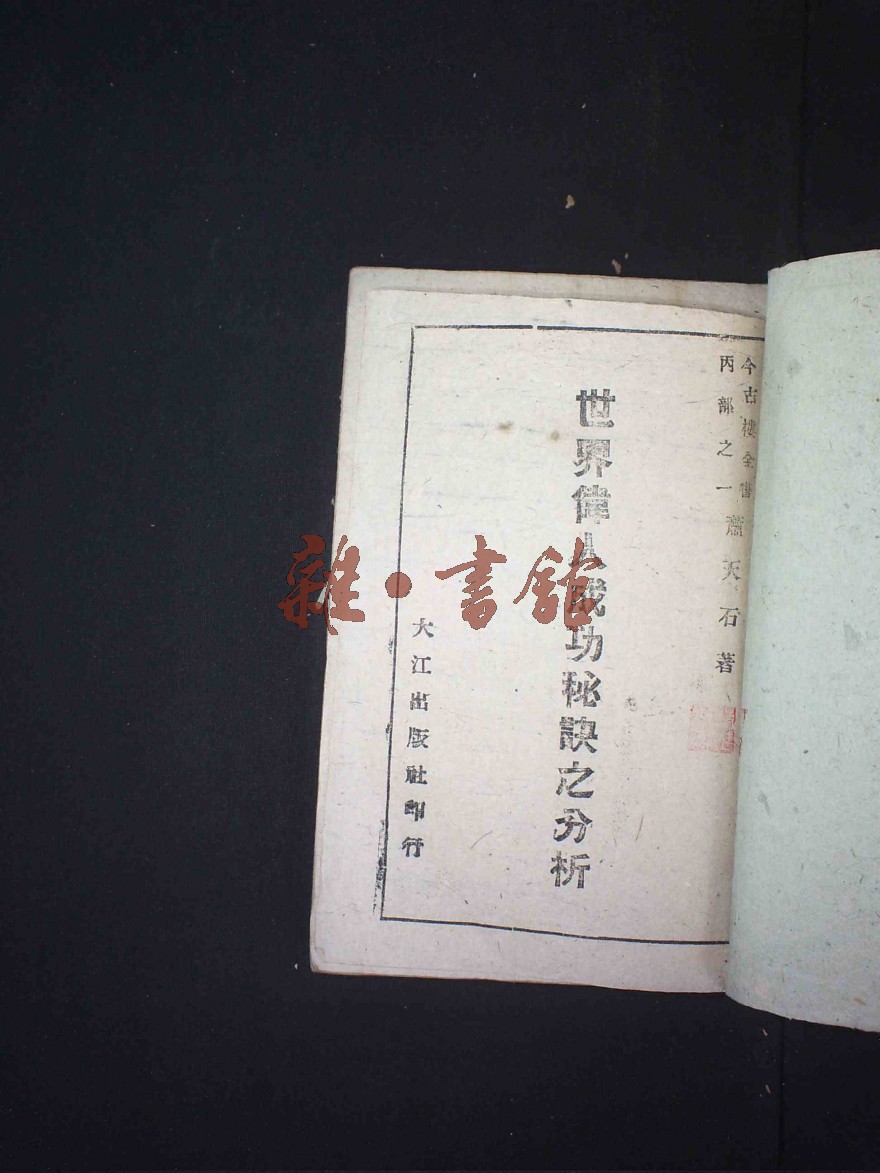 今古樓全書
丙部之一
蕭天石著
世界偉人成功秘訣之分析
大江出版社印行
雜·書館